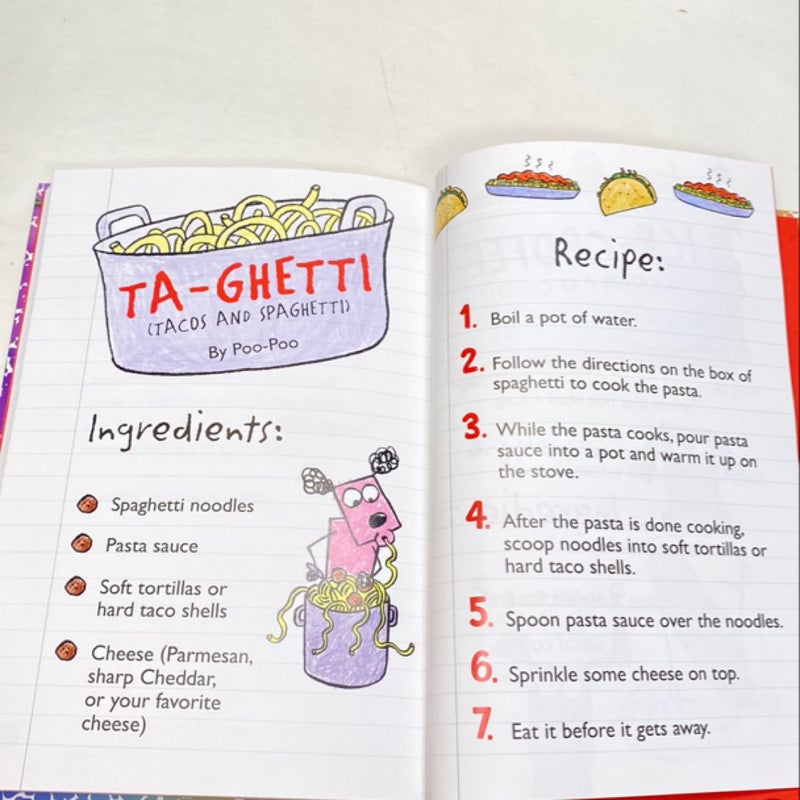 TA-GHETTI
(TACOS AND SPAGHETTI)
By Poo-Poo
Ingredients:
Spaghetti noodles
Pasta sauce
Soft tortillas or
hard taco shells
Cheese (Parmesan,
sharp Cheddar,
or your favorite
cheese)
Recipe:
1. Boil a pot of water.
2. Follow the directions on the box of
spaghetti to cook the pasta.
3. While the pasta cooks, pour pasta
sauce into a pot and warm it up on
the stove.
4. After the pasta is done cooking,
scoop noodles into soft tortillas or
hard taco shells.
5. Spoon pasta sauce over the noodles.
6. Sprinkle some cheese on top.
7. Eat it before it gets away.